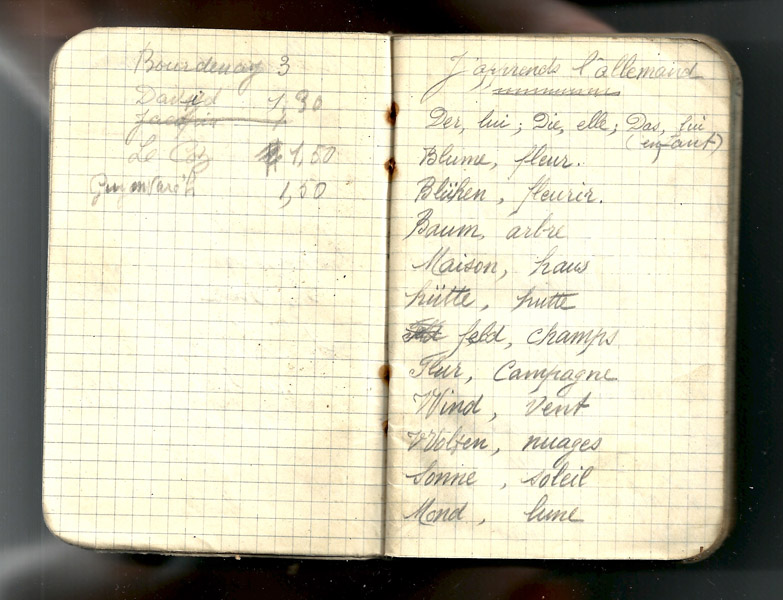 Bourdenay 3
David 1,30
Le Coz 1,50
1,50
J'apprends l'allemand
Der, lui ; Die, elle ; Das, lui
(enfant)
Blume, fleur.
Blühen, fleurir.
Baum, arbre
Maison, haus
hütte, hutte
feld, champs
Flur, Campagne
Wind, Vent
Wolken, nuages
Sonne, soleil
Mond, lune